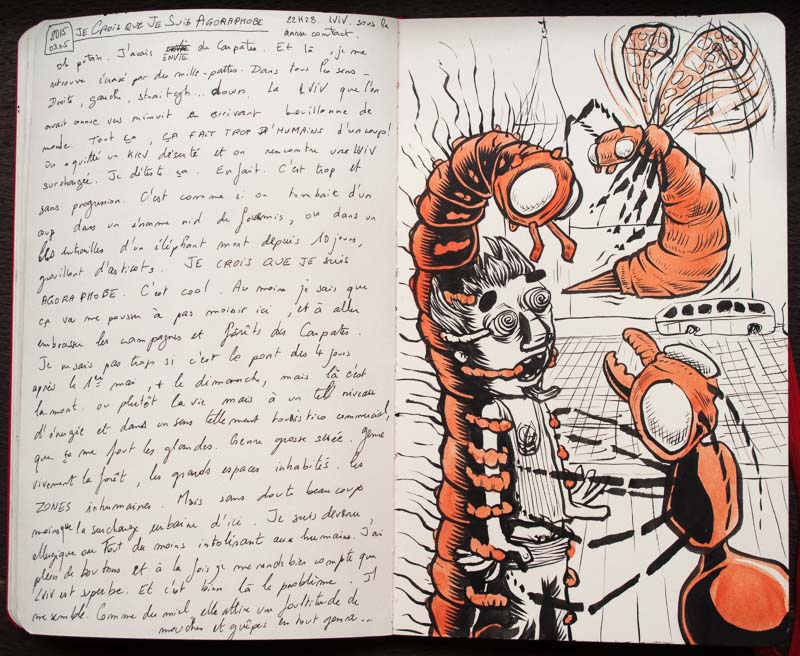 2015
03.05
JE CROIS QUE JE SUIS AGORAPHOBE
22H28. LVIV. sous la
danse contact.
Oh putain. J'avais ENVIE de Carpates. Et là, je me
retrouve écrasé par des mille-pattes. Dans tous les sens...
Droite, gauche, straitgh... down. Le LVIV que l'on
avait connu vers minuit en arrivant bouillonne de
monde. Tout ça, ÇA FAIT TROP D'HUMAINS d'un coup!
On a quitté un Kiev déserté et on rencontre une LVIV
surchargée. Je déteste ça. En fait. C'est trop et
sans progression. C'est comme si on tombait d'un
coup dans un énorme nid de fourmis, ou dans un
les entrailles d'un éléphant mort depuis 10 jours,
grouillant d'asticots. JE CROIS QUE JE suis
AGORAPHOBE. C'est cool. Au moins je sais que
ça va me pousser à pas moisir ici, et à aller
embrasser les campagnes et forêts des Carpates.
Je ne sais pas trop si c'est le pont des 4 jours
après le 1er mai, + le dimanche, mais là c'est
la mort. ou plutôt la vie mais à un tel niveau
d'énergie et dans un sens tellement touristico commercial,
que ça me fout les glandes. Genre grosse
vivement la forêt, les grands espaces inhabités. les
ZONES inhumaines. Mais sans doute beaucoup
moins que la surcharge urbaine d'ici. Je suis devenu
allergique ou tout du moins intolérant aux humains. J'ai
plein de boutons et à la fois je me rends bien compte que
LVIV est superbe. Et c'est bien là le problème. Il
me semble. Comme du miel elle attire une foultitude de
mouches et guêpes en tout genre...